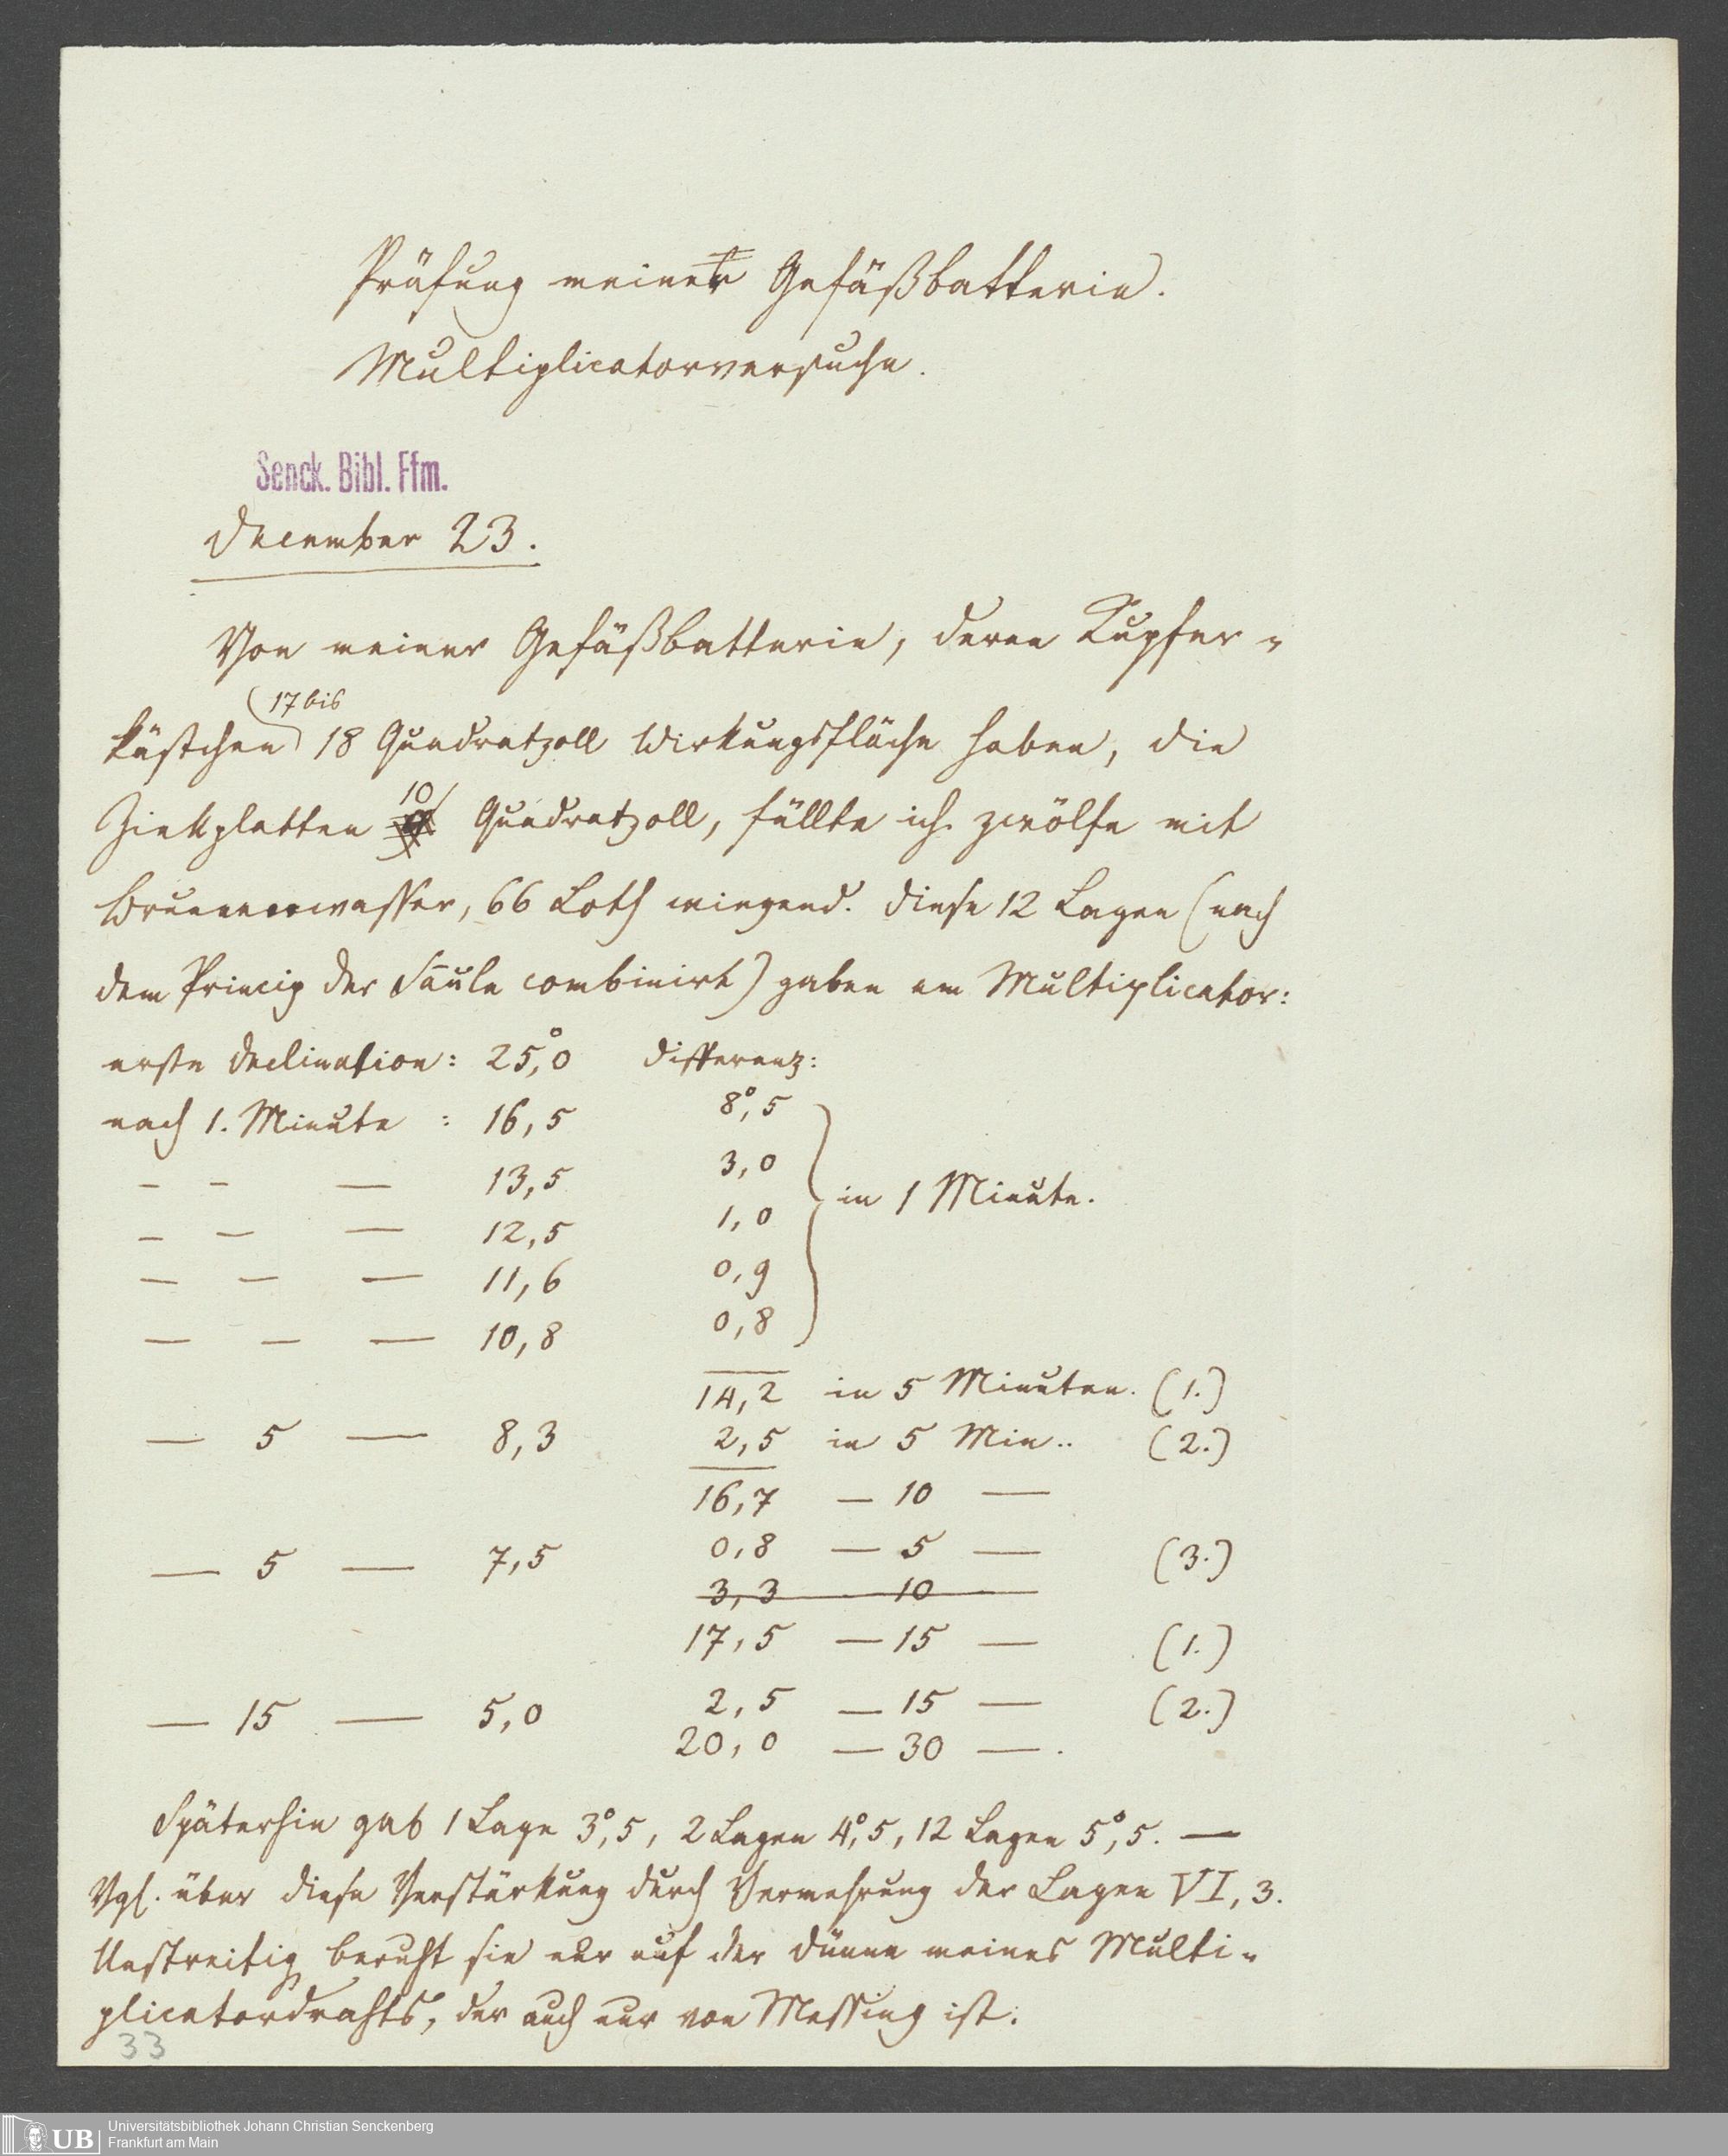 Prüfung meiner Gefäßbatterie.
Multiplicatorversuche.
Senck. Bibl. Ffm.
December 23.
Von meiner Gefäßbatterie, deren Kupfer-
17 bis
kästchen 18 Quadratzoll Wirkungsfläche haben, die
10
Zinkplatten Quadratzoll, füllte ich zwölfe mit
Brunnenwasser, 66 Loth wiegend. Diese 12 Lagen (nach
dem Princip der Säule combinirt) gaben am Multiplicator:
erste Declination: 25°,0 Differenz:
nach 1. Minute : 16,5 8°,5
— — — 13,5 3,0
in 1 Minute.
— — — 12,5 1,0
— — — 11,6 0,9
— — — 10,8 0,8
14,2 in 5 Minuten. (1.)
— 5 — 8,3 2,5 in 5 Min.. (2.)
16,7 — 10 —
— 5 — 7,5 0,8 — 5 — (3.)
3,3 — 10 —
17,5 — 15 — (1.)
— 15 — 5,0 2,5 — 15 — (2.)
20,0 — 30 — .
Späterhin gab 1 Lage 3°,5, 2 Lagen 4°,5, 12 Lagen 5°,5. —
Vgl. über diese Verstärkung durch Vermehrung der Lagen VI, 3.
Unstreitig beruht sie nur auf der Dünne meines Multi-
plicatordrahts, der auch nur von Messing ist.
33
UB Universitätsbibliothek Johann Christian Senckenberg
Frankfurt am Main